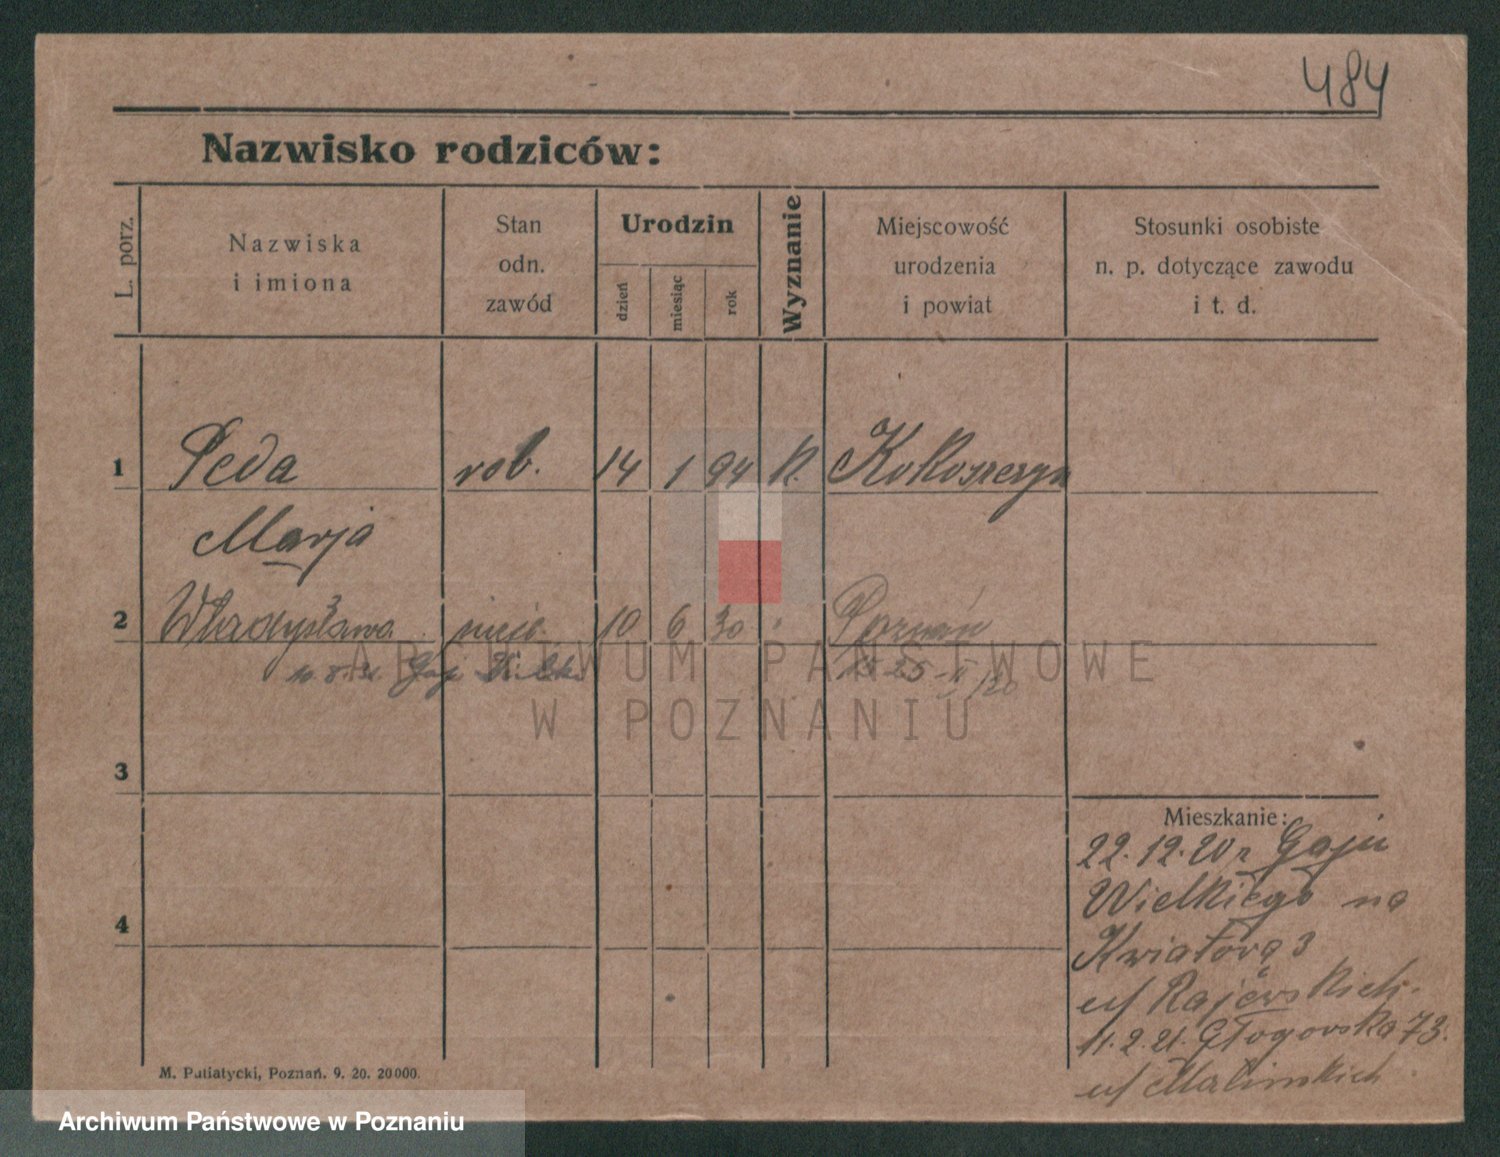 484
Nazwisko rodziców:
L. porz.
Nazwiska
i imiona
Stan
odn.
zawód
Urodzin
dzień
miesiąc
rok
Wyznanie
Miejscowość
urodzenia
i powiat
Stosunki osobiste
n. p. dotyczące zawodu
i t. d.
1 Peda rob. 14 1 94 k. Kokoszczyn
Marja
2 Władysława 10 6 30 Poznań
3
4
Mieszkanie:
22.12.20 z Gaju
Wielkiego na
Kwiatową 3
u/ Rajewskich.
11.2.21. Głogowska 73.
u/ Malinskich
M. Putiatycki, Poznań. 9. 20. 20000.
ARCHIWUM PAŃSTWOWE
W POZNANIU
Archiwum Państwowe w Poznaniu